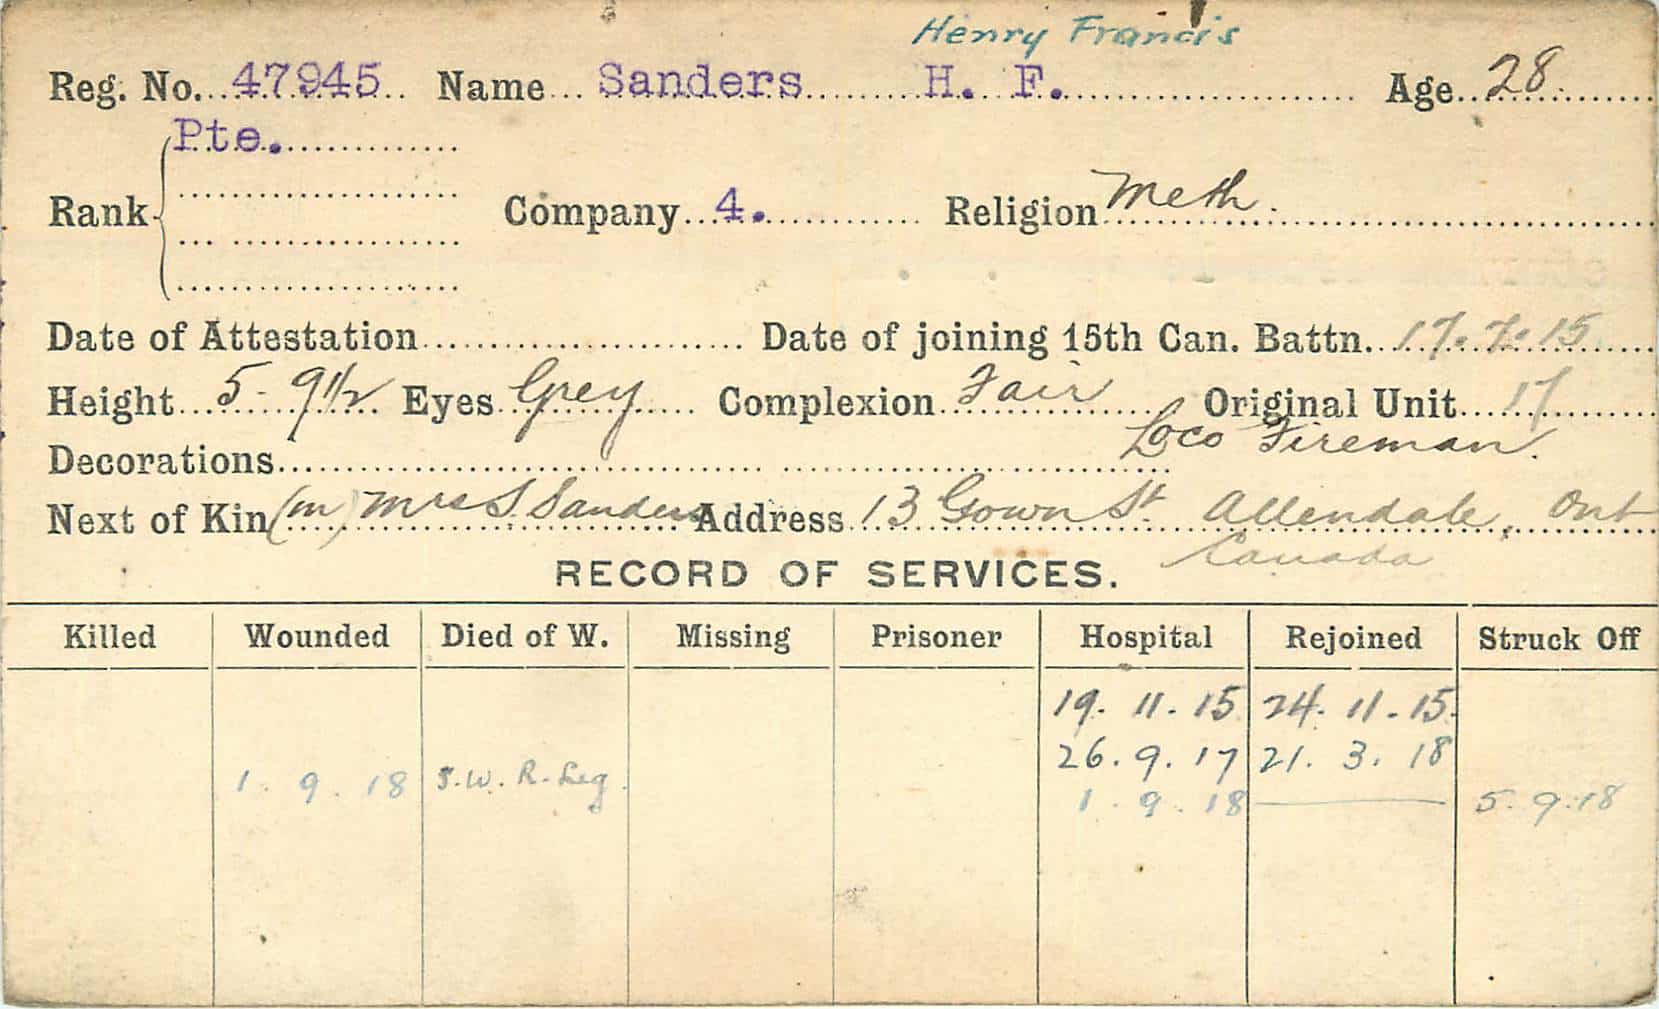 Henry Francis
Reg. No. 47945 Name Sanders H. F. Age 28
Pte.
Rank Company 4. Religion Meth.
Date of Attestation Date of joining 15th Can. Battn. 17.7.15
Height 5-9 1/2 Eyes Grey Complexion Fair Original Unit 17
Loco Fireman.
Decorations
Next of Kin (m) Mrs S Sanders Address 13 Gown St Allendale, Ont
Canada
RECORD OF SERVICES.
Killed Wounded Died of W. Missing Prisoner Hospital Rejoined Struck Off
19. 11. 15 24. 11. 15.
26. 9. 17 21. 3. 18
1. 9. 18 S.W. R. Leg. 1. 9. 18 5. 9. 18